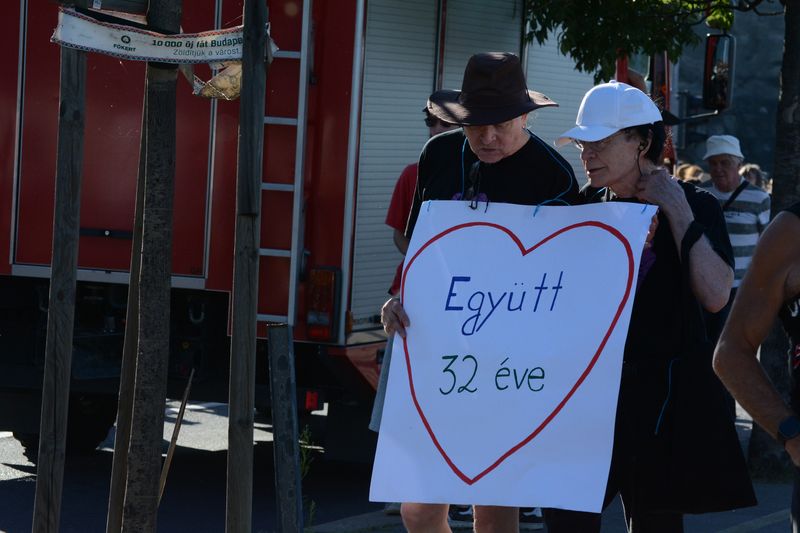 10 000 új fát Budape
Zöldítjük a várost.
FŐKERT
Együtt
32 éve